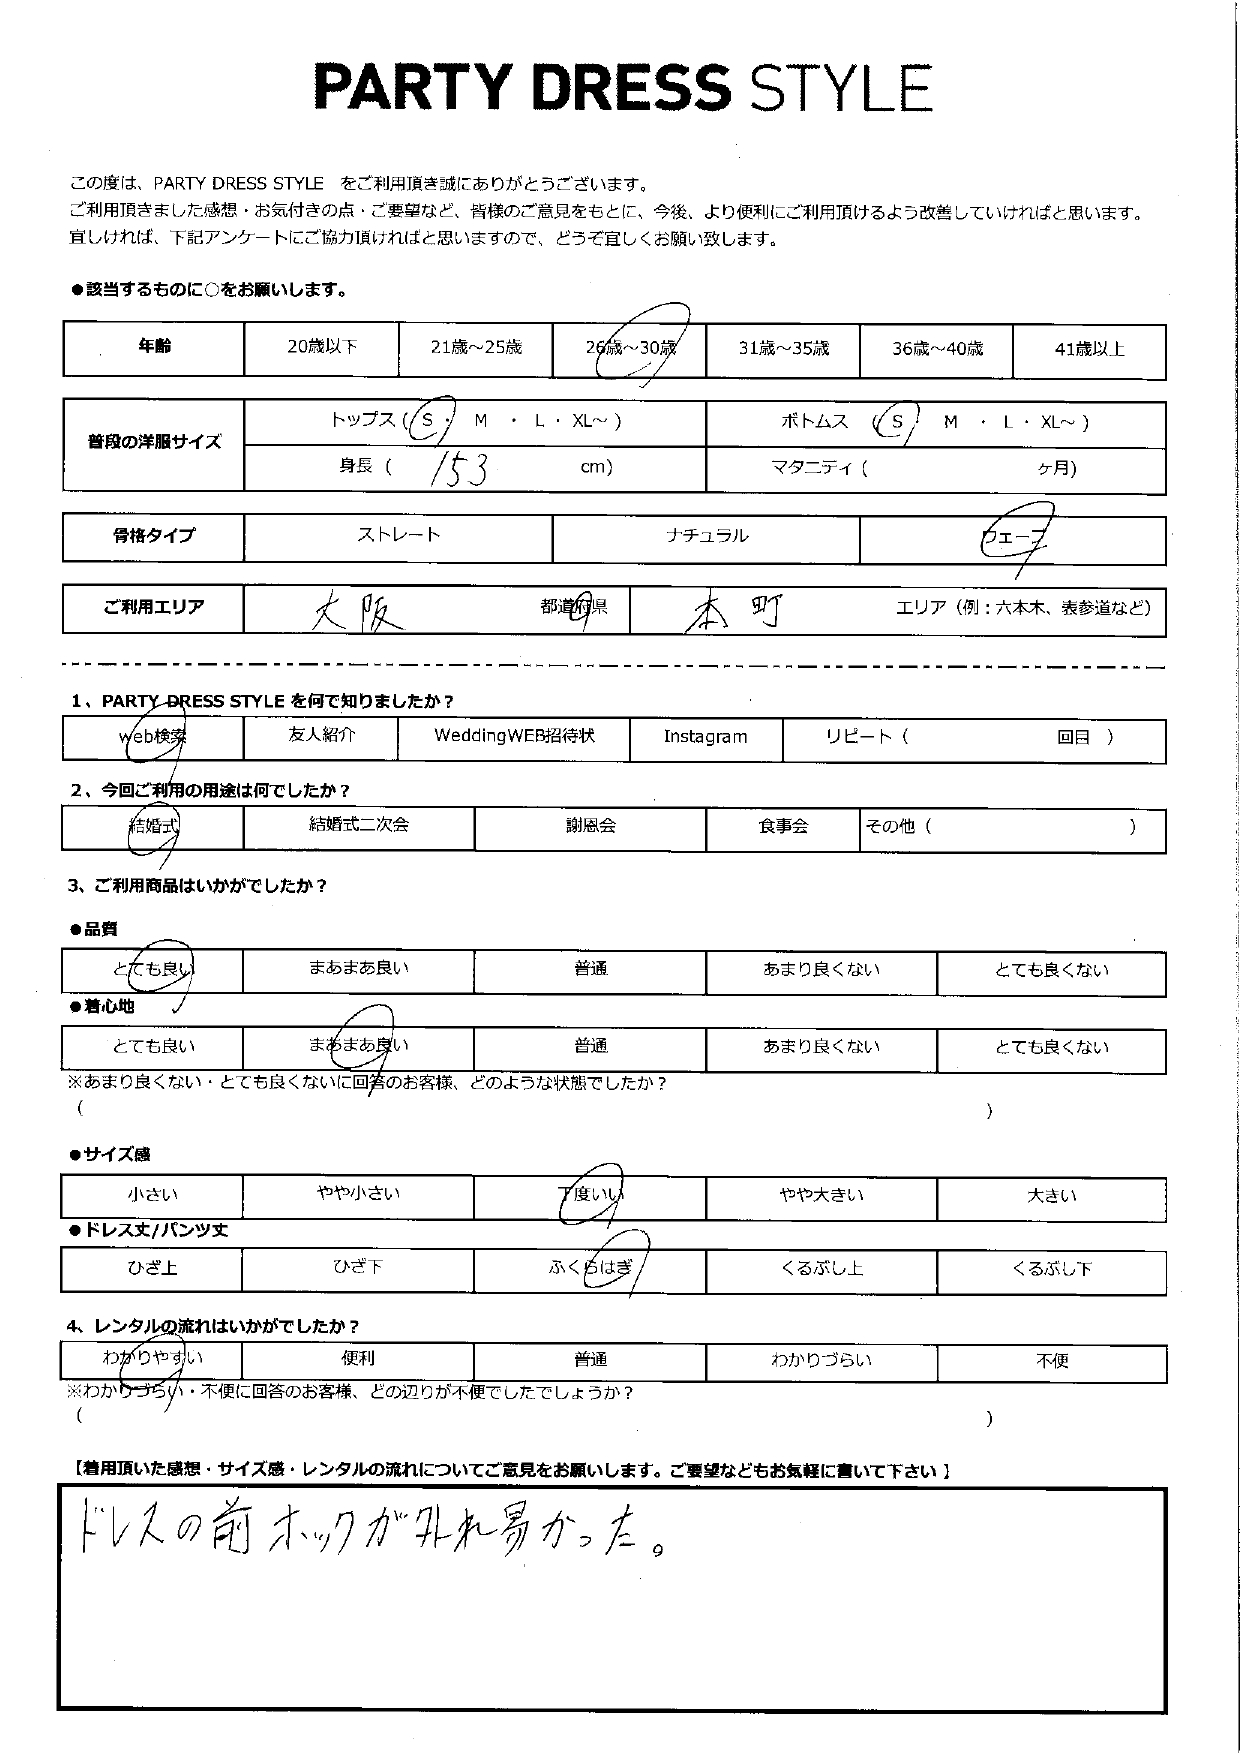 PARTY DRESS STYLE
この度は、PARTY DRESS STYLE をご利用頂き誠にありがとうございます。
ご利用頂きました感想・お気付きの点・ご要望など、皆様のご意見をもとに、今後、より便利にご利用頂けるよう改善していければと思います。
宜しければ、下記アンケートにご協力頂ければと思いますので、どうぞ宜しくお願い致します。
●該当するものに○をお願いします。
年齢 20歳以下 21歳～25歳 26歳～30歳 31歳～35歳 36歳～40歳 41歳以上
普段の洋服サイズ トップス ( S ・ M ・ L ・ XL～ ) ボトムス ( S ・ M ・ L ・ XL～ )
身長 ( 153 cm) マタニティ ( ヶ月)
骨格タイプ ストレート ナチュラル ウェーブ
ご利用エリア 大阪 都道府県 本町 エリア（例：六本木、表参道など）
1、PARTY DRESS STYLE を何で知りましたか？
web検索 友人紹介 WeddingWEB招待状 Instagram リピート ( 回目 )
2、今回ご利用の用途は何でしたか？
結婚式 結婚式二次会 謝恩会 食事会 その他 ( )
3、ご利用商品はいかがでしたか？
●品質
とても良い まあまあ良い 普通 あまり良くない とても良くない
●着心地
とても良い まあまあ良い 普通 あまり良くない とても良くない
※あまり良くない・とても良くないに回答のお客様、どのような状態でしたか？
( )
●サイズ感
小さい やや小さい 丁度いい やや大きい 大きい
●ドレス丈/パンツ丈
ひざ上 ひざ下 ふくらはぎ くるぶし上 くるぶし下
4、レンタルの流れはいかがでしたか？
わかりやすい 便利 普通 わかりづらい 不便
※わかりづらい・不便に回答のお客様、どの辺りが不便でしたでしょうか？
( )
【着用頂いた感想・サイズ感・レンタルの流れについてご意見をお願いします。ご要望などもお気軽に書いて下さい】
ドレスの前ホックが外れ易かった。